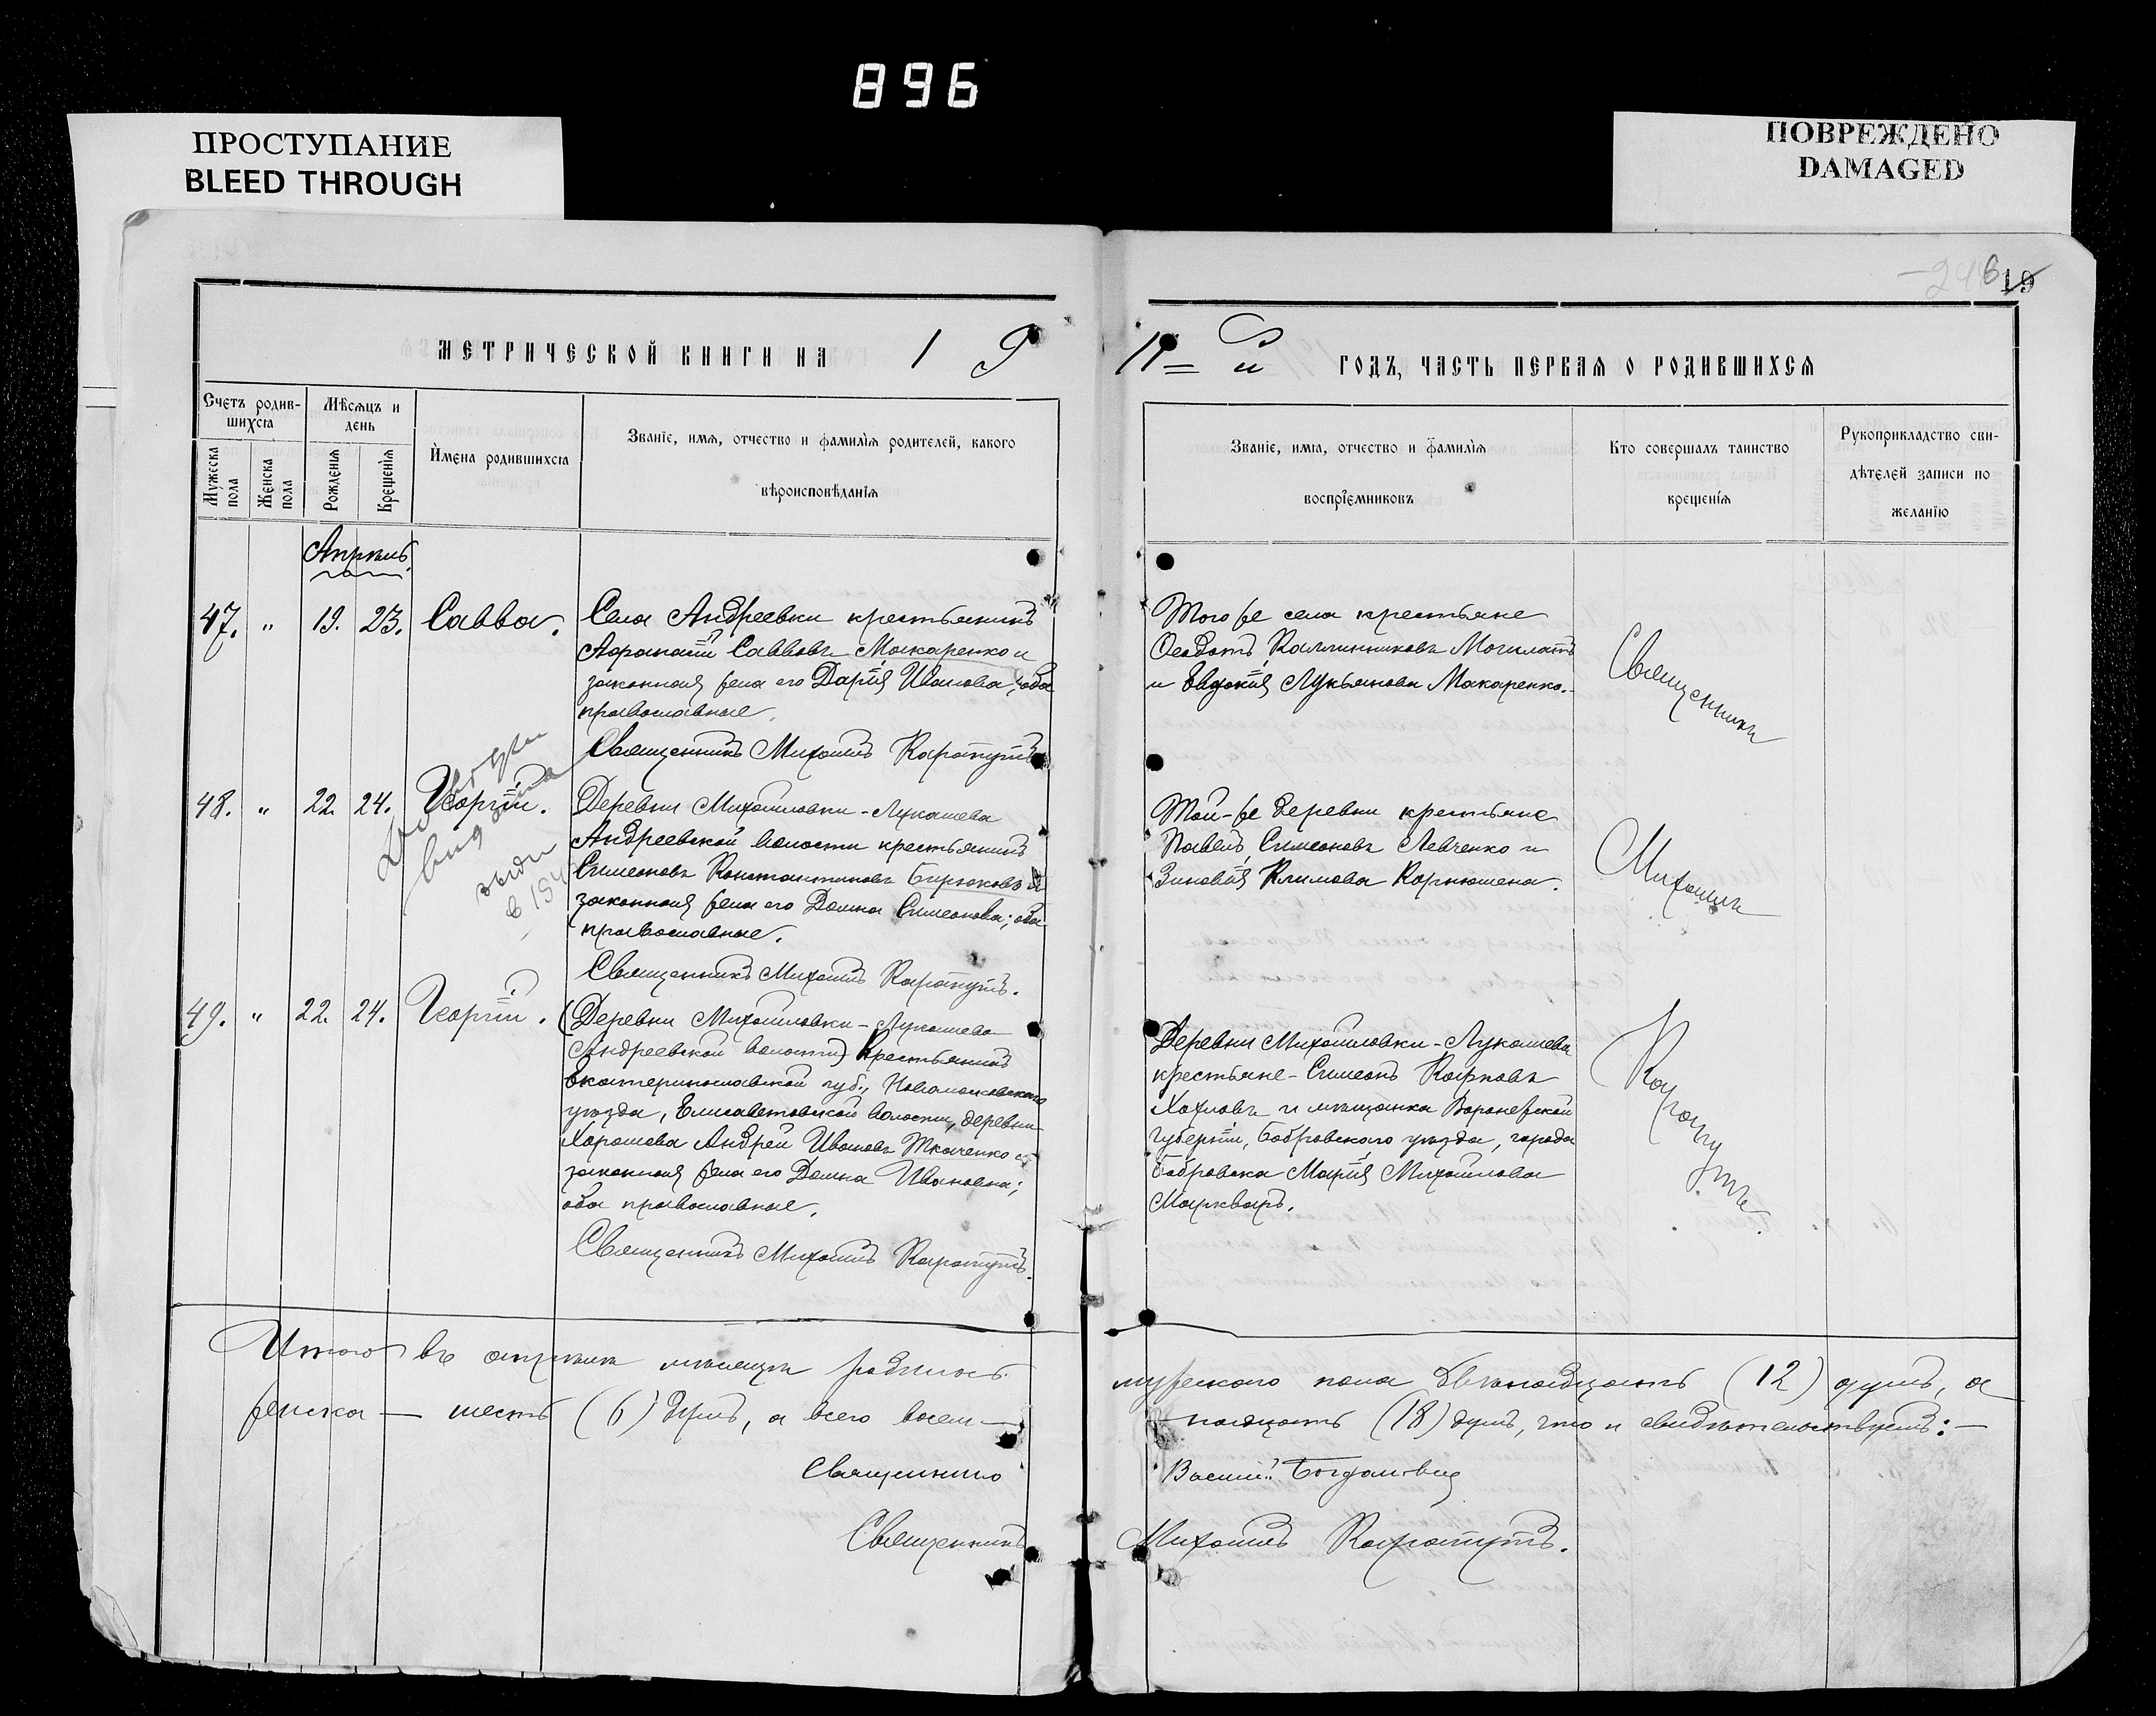 896
ПРОСТУПАНИЕ
BLEED THROUGH
ПОВРЕЖДЕНО
DAMAGED
19
МЕТРИЧЕСКОЙ КНИГИ НА 1 9
11=й ГОДЪ, ЧАСТЬ ПЕРВАЯ О РОДИВШИХСЯ
Счетъ родив-
шихся
Мужеска
пола
Женска
пола
Мѣсяцъ и
день
Рожденія
Крещенія
Имена родившихся
Званіе, имя, отчество и фамилія родителей, какого
вѣроисповѣданія
Званіе, имя, отчество и фамилія
воспріемниковъ
Кто совершалъ таинство
крещенія
Рукоприкладство сви-
дѣтелей записи по
желанію
Апрѣль.
47. " 19. 23. Савва.
Села Андреевки крестьянинъ
Афанасій Саввовъ Макаренко и
законная жена его Дарія Иванова; оба
православные.
Священникъ Михаилъ Карапутъ
Того же села крестьяне
Феодотъ Каллинниковъ Могилатъ
и Евдокія Лукьянова Макаренко.
Священникъ
48. " 22. 24. Георгій.
Деревни Михайловки-Лукашева
Андреевской волости крестьянинъ
Симеонъ Константиновъ Бирюковъ и
законная жена его Домна Симеонова; оба
православные.
Священникъ Михаилъ Карапутъ.
Той-же деревни крестьяне
Павелъ Симеоновъ Левченко и
Зиновія Климова Корнюшена.
Михаилъ
49. " 22. 24. Георгій.
(Деревни Михайловки-Лукашева
Андреевской волости) Крестьянинъ
Екатеринославской губ., Новомосковскаго
уѣзда, Елисаветовской волости, деревни
Хорошева Андрей Ивановъ Ткаченко и
законная жена его Домна Ивановна;
оба православные.
Священникъ Михаилъ Карапутъ.
Деревни Михайловки-Лукашева
крестьяне-Симеонъ Карповъ
Хохловъ и мѣщанка Воронежской
губерніи, Бобровскаго уѣзда, города
Бобровска Марія Михайлова
Маркваръ.
Карапутъ.
Итого въ апрѣлѣ мѣсяцѣ родилось
мужескаго пола двѣнадцать (12) душъ, а
женска — шесть (6) душъ, а всего восем-
надцать (18) душъ, что и свидѣтельствуемъ:—
Священникъ
Василій Богдановичъ
Священникъ
Михаилъ Карапутъ.